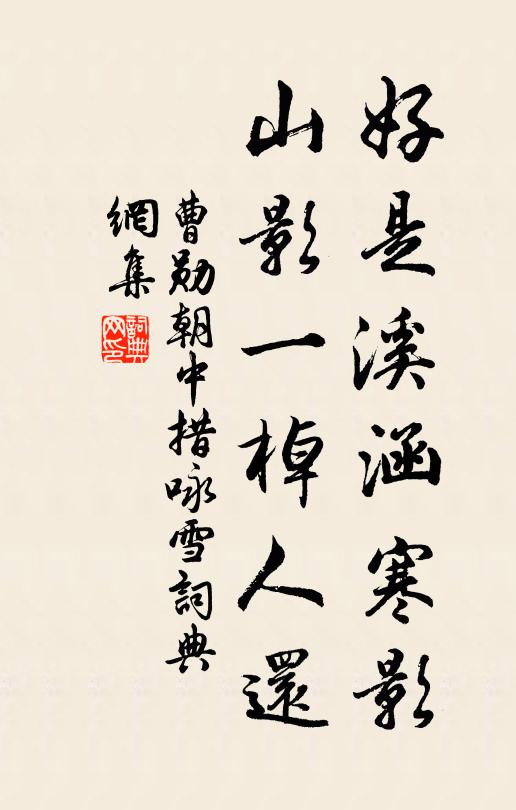 好是溪涵寒影
山影一棹人還
曹勛朝中措咏雪詞典
網集
詞典
网印